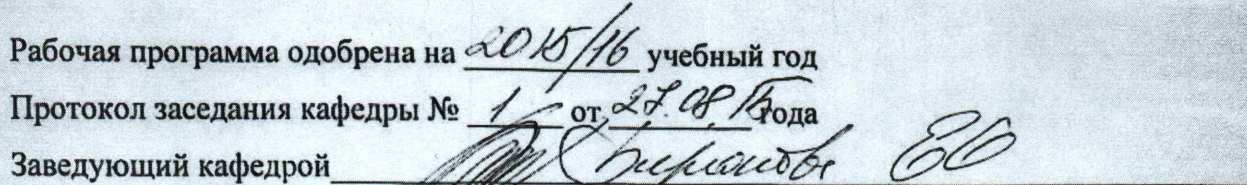 Рабочая программа одобрена на 2015/16 учебный год
Протокол заседания кафедры № 1 от 27.08.15 года
Заведующий кафедрой